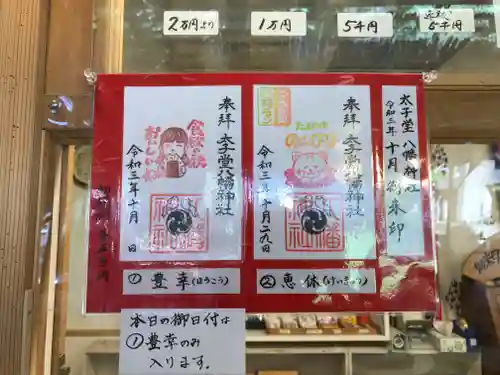 2万円より
1万円
5千円
5千円
太子堂八幡神社
令和三年十月御朱印
奉拝
太子堂八幡神社
令和三年十月二九日
奉拝
太子堂八幡神社
食欲の秋
おいしいね
令和三年十月 日
①豊幸(ほうこう)
②恵休(けいきゅう)
本日の御日付は
①豊幸のみ
入ります。